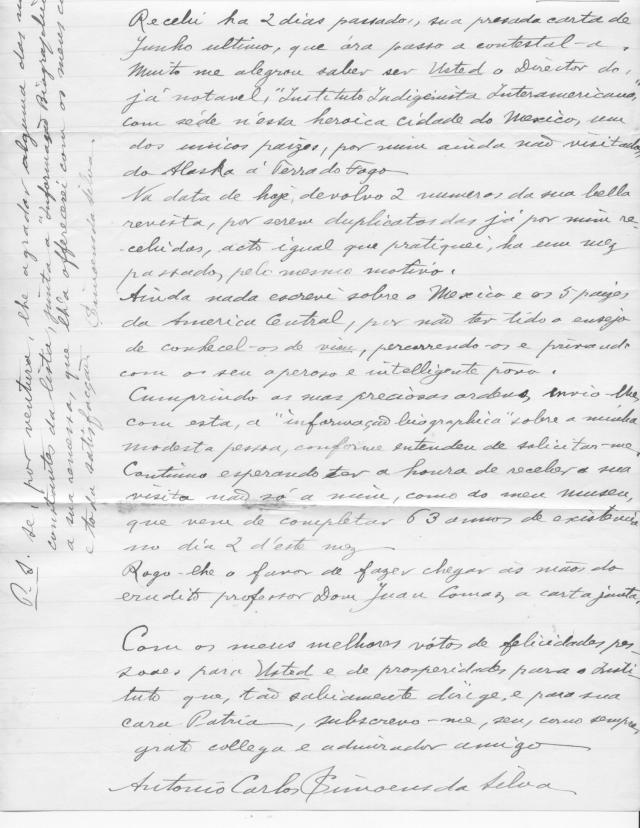 Recebi ha 2 dias passados, sua presada carta de
Junho ultimo, que óra passo a contestal-a.
Muito me alegrou saber ser Usted o Director do,
já notavel, "Instituto Indigenista Interamericano,
com séde n'essa heroica cidade do Mexico, um
dos unicos paizes, por mim ainda não visitados,
do Alaska á Terra do Fogo.
Na data de hoje, devolvo 2 numeros da sua bella
revista, por serem duplicatas das já por mim re-
cebidas, acto igual que pratiquei, ha um mez
passado, pelo mesmo motivo.
Ainda nada escrevi sobre o Mexico e os 5 paizes
da America Central, por não ter tido o ensejo
de conhecel-os de visu, percorrendo-os e privando
com os seu operoso e intelligente pôvo.
Cumprindo as suas preciosas ordens, envio-lhe,
com esta, a "informação biographica" sobre a minha
modesta pessoa, conforme entendeu de solicitar-me.
Continuo esperando ter a honra de receber a sua
visita não só a mim, como ao meu museu,
que vem de completar 63 annos de existencia
no dia 2 d'este mez
Rogo-lhe o favor de fazer chegar ás mãos do
erudito professor Dom Juan Comas, a carta junta.
Com os meus melhores vótos de felicidades pes-
soaes para Usted e de prosperidades para o Insti-
tuto que, tão sabiamente dirige, e para sua
cara Patria, subscrevo-me, seu, como sempre,
grato collega e admirador amigo
Antonio Carlos Simoens da Silva
P.S. se, por ventura, lhe agradar alguma das
constantes da lista, junta a "informação Biographica
a sua remessa, que lh'a offerecerei com os meus
e toda satisfação. Simoens da Silva.